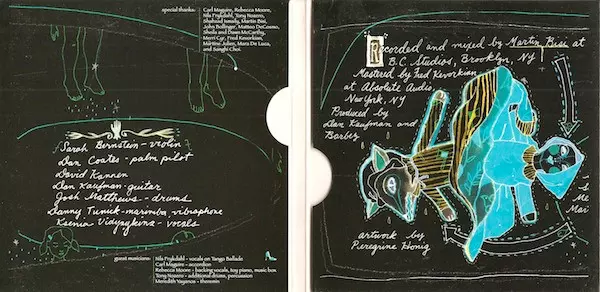 special thanks:
Carl Maguire, Rebecca Moore,
Nils Frykdahl, Tony Nozero,
Shahzad Ismaily, Martin Bisi,
John Bollinger, Matteo DeCosmo,
Sheila and Dawn McCarthy,
Merri Cyr, Fred Kevorkian,
Martine Julien, Mara De Luca,
and Sanghi Choi.
Sarah Bernstein - violin
Dan Coates - palm pilot
David Kannen
Dan Kaufman - guitar
Josh Matthews - drums
Danny Tunick - marimba vibraphone
Ksenia Vidyaykina - vocals
guest musicians:
Nils Frykdahl - vocals on Tango Ballade
Carl Maguire - accordion
Rebecca Moore - backing vocals, toy piano, music box
Tony Nozero - additional drums, percussion
Meredith Yayanos - theremin
Recorded and mixed by Martin Bisi at
B.C. Studios, Brooklyn, NY
Mastered by Fred Kevorkian
at Absolute Audio,
New York, NY
Produced by
Dan Kaufman and
Barbez
artwork by
Peregrine Honig